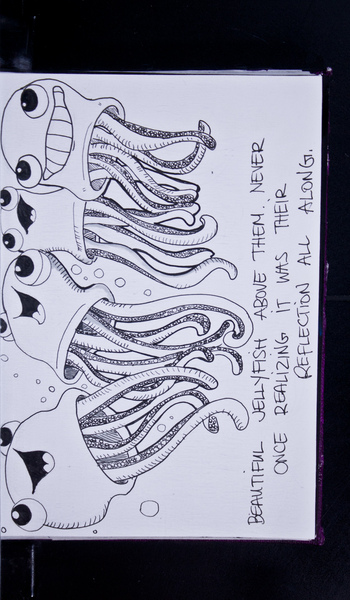 BEAUTIFUL JELLYFISH ABOVE THEM. NEVER
ONCE REALIZING IT WAS THEIR
REFLECTION ALL ALONG.